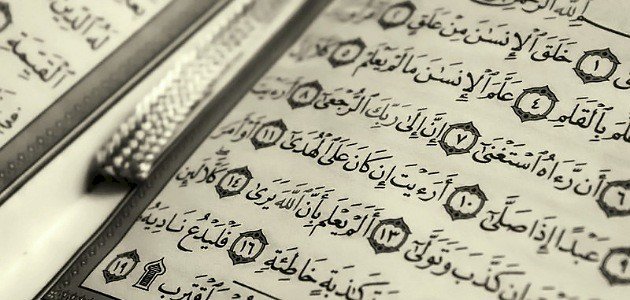 ٱللَّهِ ٱلرَّحْمَٰنِ
١ خَلَقَ ٱلْإِنسَٰنَ مِنْ عَلَقٍ ٢
بِٱلْقَلَمِ ٤ عَلَّمَ ٱلْإِنسَٰنَ مَا لَمْ يَعْلَمْ ٥ كَلَّآ
٦ أَن رَّءَاهُ ٱسْتَغْنَىٰٓ ٧ إِنَّ إِلَىٰ رَبِّكَ ٱلرُّجْعَىٰٓ ٨ أَرَءَيْتَ
٩ عَبْدًا إِذَا صَلَّىٰٓ ١٠ أَرَءَيْتَ إِن كَانَ عَلَى ٱلْهُدَىٰٓ ١١ أَوْ أَمَرَ
إِن كَذَّبَ وَتَوَلَّىٰٓ ١٣ أَلَمْ يَعْلَم بِأَنَّ ٱللَّهَ يَرَىٰ ١٤ كَلَّا لَئِن
كَٰذِبَةٍ خَاطِئَةٍ ١٦ فَلْيَدْعُ نَادِيَهُۥ
وَٱقْتَرِب ۩ ١٩
لَهُ ٱلدِّينَ
ٱلْقَيِّمَةِ